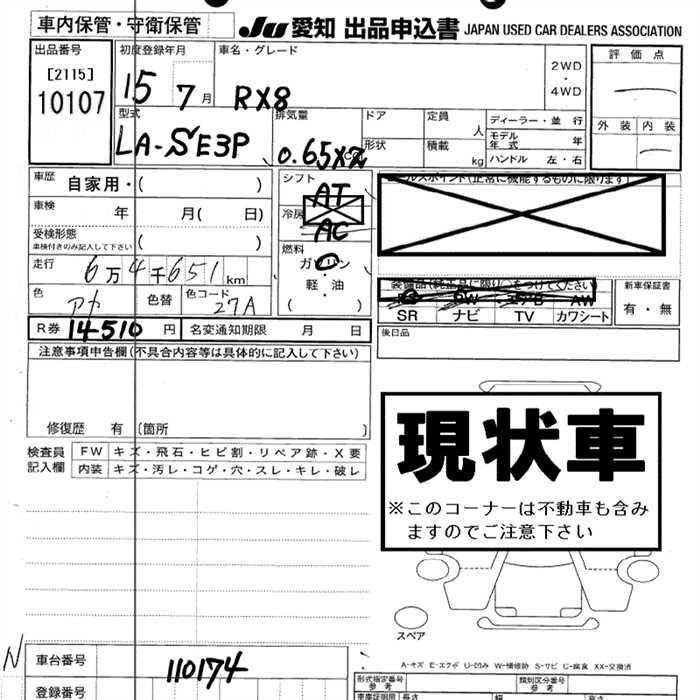 車内保管・守衛保管 JU 愛知 出品申込書 JAPAN USED CAR DEALERS ASSOCIATION
出品番号 初度登録年月 車名・グレード 評価点
[2115] 15 7月 RX8 2WD・4WD
10107
型式 排気量 ドア 定員 人 ディーラー・並行 外装 内装
LA-SE3P 0.65X2 形状 積載 kg モデル年式 年
ハンドル 左・右
車歴 自家用・( ) シフト AT
車検 年 月( 日) 冷房 AC
受検形態 ( )
車検付きのみ記入して下さい
燃料 ガソリン・軽・油 ( )
走行 6万4千651km 装備品(純正品に限り○をつけてください) 新車保証書
色 アカ 色替 色コード 27A AW 有・無
SR ナビ TV カワシート
R券 14510円 名変通知期限 月 日 後日品
注意事項申告欄(不具合内容等は具体的に記入して下さい)
修復歴 有 〔箇所 〕
現状車
※このコーナーは不動車も含み
ますのでご注意下さい
検査員記入欄 FW キズ・飛石・ヒビ割・リペア跡・X要
内装 キズ・汚レ・コゲ・穴・スレ・キレ・破レ
スペア
A-キズ E-エクボ U-凹み W-補修跡 S-サビ C-腐食 XX-交換済
N 車台番号 110174 形式指定番号 参考 類別区分番号 参考
登録番号 長さ 幅 高さ